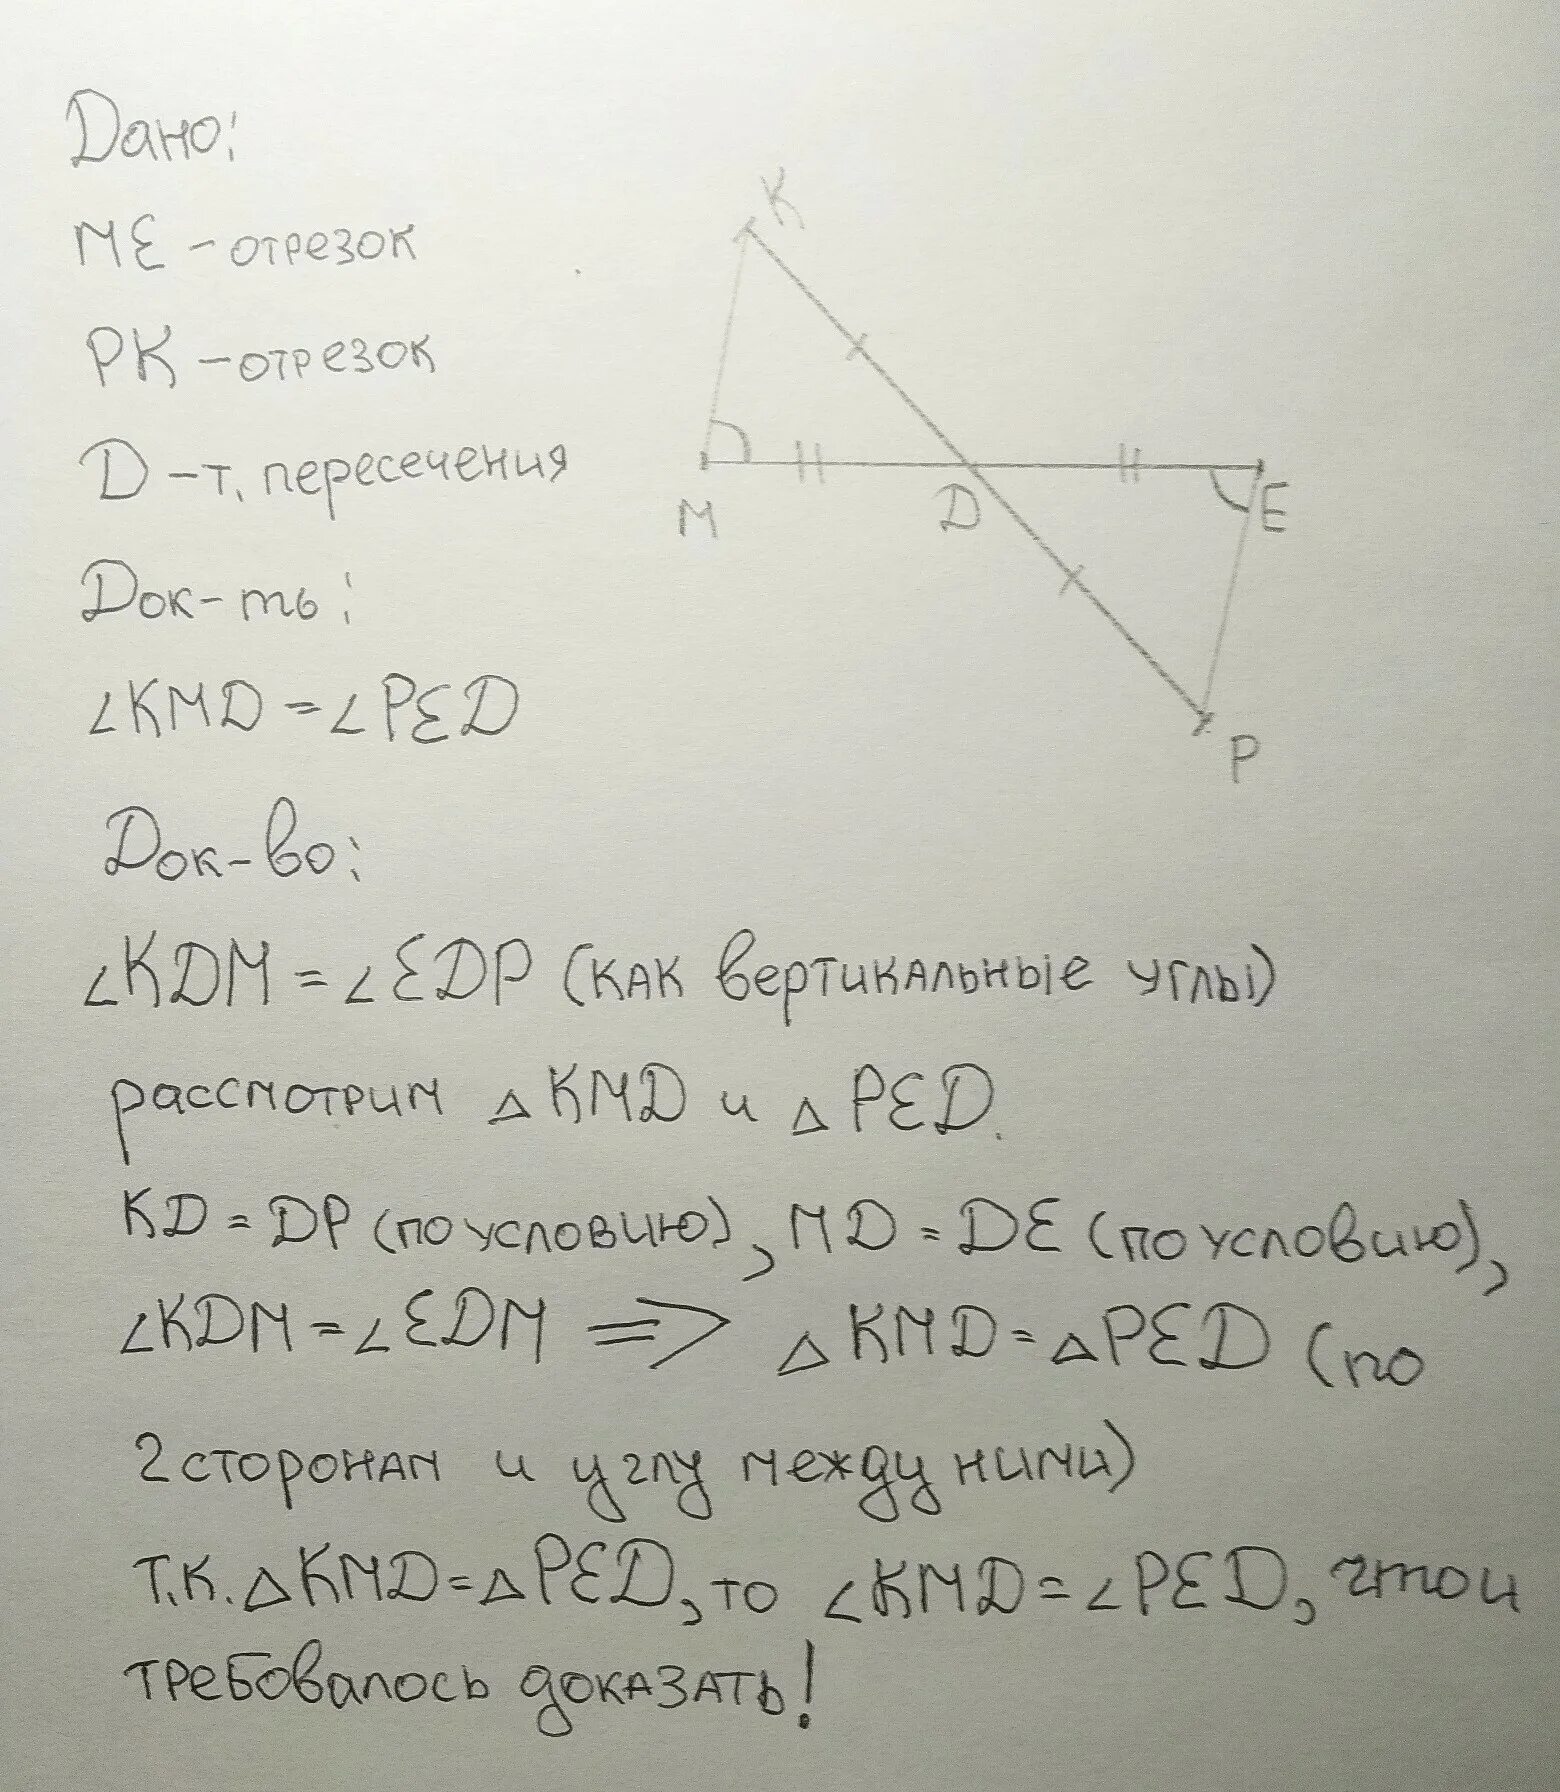 Дано:
МЕ - отрезок
РК - отрезок
D - т. пересечения
Док-ть:
∠KMD = ∠PED
Док-во:
∠KDM = ∠EDP (как вертикальные углы)
рассмотрим △KMD и △PED.
KD = DP (по условию), MD = DE (по условию),
∠KDM = ∠EDM => △KMD = △PED (по
2 сторонам и углу между ними)
Т.К. △KMD = △PED, то ∠KMD = ∠PED, что и
требовалось доказать!
K
M
D
E
P